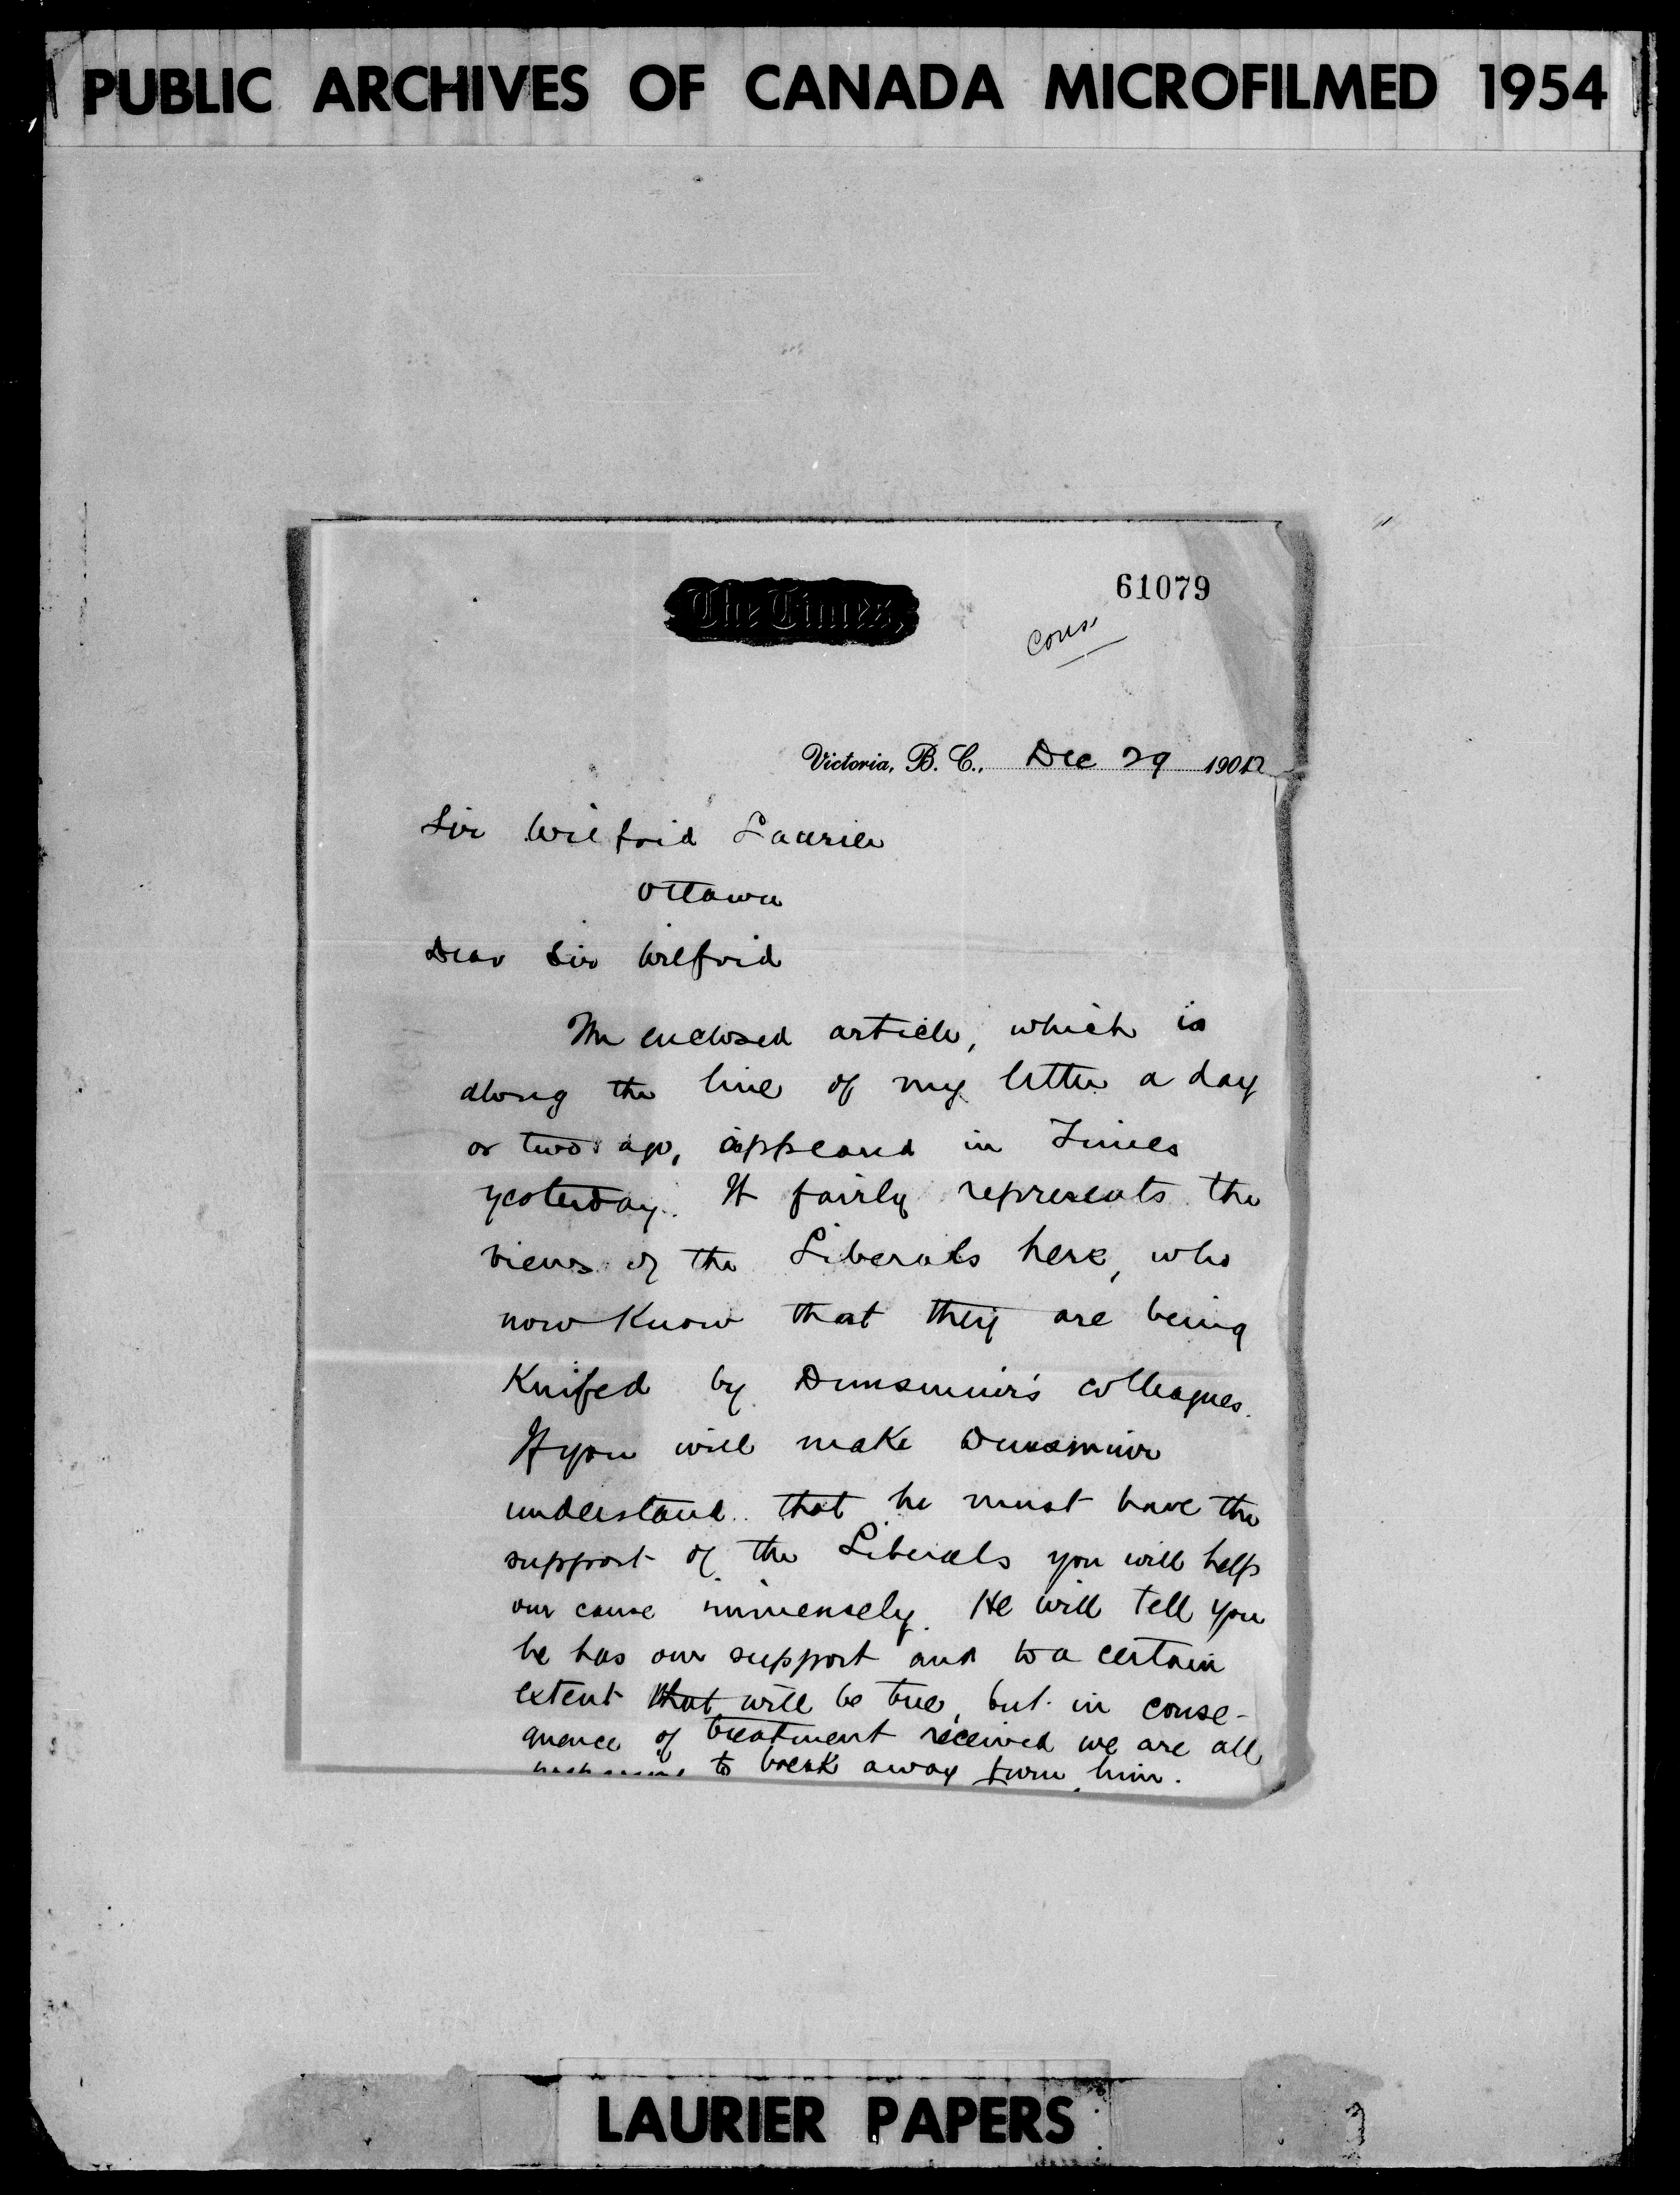 PUBLIC ARCHIVES OF CANADA MICROFILMED 1954
61079
The Times,
Victoria, B. C., Dec 29 190
Sir Wilfrid Laurier
Ottawa
Dear Sir Wilfrid
The enclosed article, which is
along the line of my letter a day
or two ago, appeared in Times
yesterday. It fairly represents the
views of the Liberals here, who
now know that they are being
Knifed by Dunsmuir's colleagues.
If you will make Dunsmuir
understand that he must have the
support of the Liberals you will help
our cause immensely. He will tell you
he has our support and to a certain
extent that will be true, but in conse-
quence of treatment received we are all
to break away from him.
LAURIER PAPERS